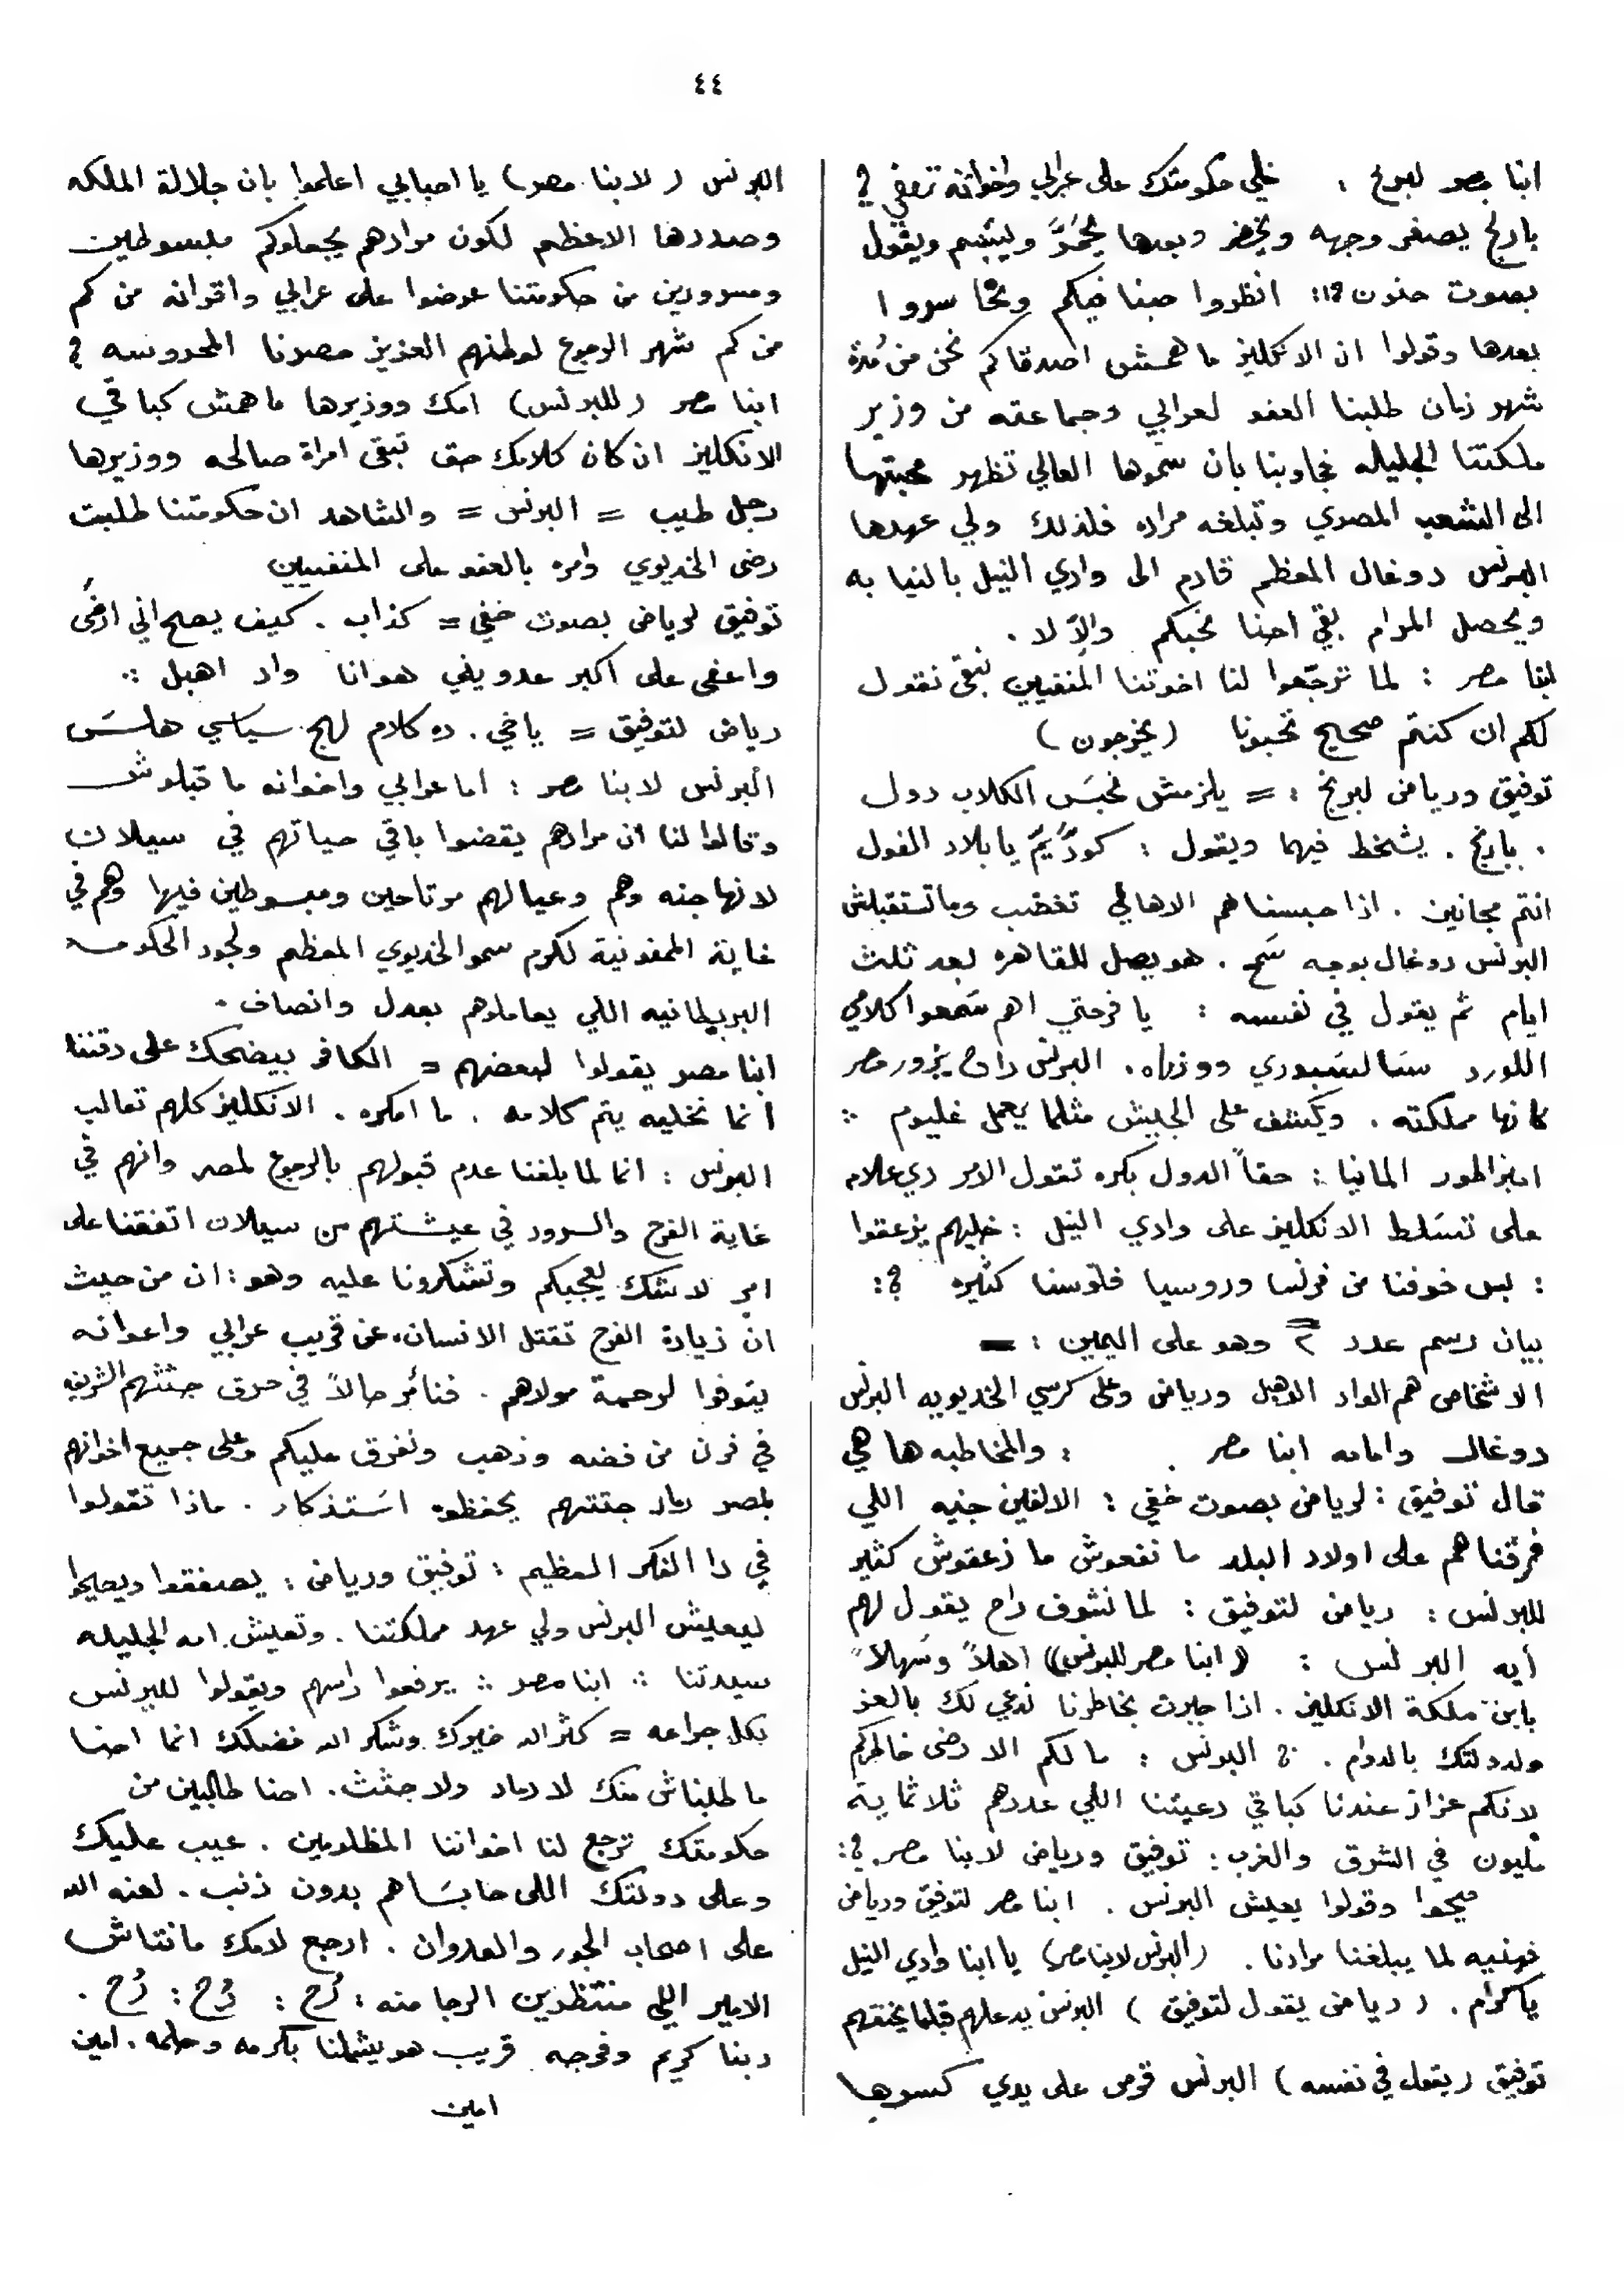 ٤٤
ابنا مصر لبرنج : خلي حكومتك على عرابي واخوانه تعفي ؟
بارنج يصفر وجهه ويخضر وبعدها يحمَرَّ ويتبسم ويقول
بصوت حنون :؟ انظروا حبنا فيكم وبخا سروا
بعدها وقولوا ان الانكليز ما همش اصدقاكم نحن من مُدة
شهر زمان طلبنا العفو لعرابي وجماعته من وزير
ملكتنا الجليله فجاوبنا بان سموها العالي تظهر محبتها
الى الشعب المصري وتبلغه مراده فلذلك ولي عهدها
البرنس دوغال المعظم قادم الى وادي النيل بالنيا به
ويحصل المرام بقي احنا نحبكم والاّ لا .
ابنا مصر : لما ترجّعوا لنا اخوتنا المنفيين نبقى نقول
لكم ان كنتم صحيح تحبونا (يخرجون)
توفيق ورياض لبرنج : = يلزمش نحبسَ الكلاب دول
. بارنج . يشخط فيهما ويقول : كودّيمّ يا بلاد الفول
انتم مجانين . اذا حبسناهم الاهالي تغضب وما تستقبلش
البرنس دوغال بوجه سَمح . هو يصل للقاهره بعد ثلث
ايام ثم يقول في نفسه : يا فرحتي اهم سَمعوا كلامي
اللورد سَالسَبوري ووزراه . البرنس راح يزور مصر
كانها مملكته . ويكشف على الجيش مثلما يعمل غليوم :
امبراطور المانيا : حقاً الدول بكره تقول الامر دي علامه
على تسَلط الانكليز على وادي النيل : خليهم يزعقوا
: بس خوفنا من فرنسا وروسيا فلوسنا كثيره ؟:
بيان رسم عدد ٢ وهو على اليمين : =
الاشخاص هم الواد الاهبل ورياض وعلى كرسي الخديويه البرنس
دوغال وامامه ابنا مصر : والمخاطبه ها هي
قال توفيق : لرياض بصوت خفي : الالفين جنيه اللي
فرقناهم على اولاد البلد ما نفعوش ما زعقوش كثير
للبرنس : رياض لتوفيق : لما نشوف راح يقول لهم
أيه البرنس : ((ابنا مصر للبرنس)) اهلاً وسَهلاً
يابن ملكة الانكليز . اذا جبرت بخاطرنا ندعي لك بالعز
ولدولتك بالدوام . ؟ البرنس : ما لكم الا رضى خاطركم
لانكم عزاز عندنا كباقي رعيتنا اللي عددهم ثلاثماية
مليون في الشرق والغرب : توفيق ورياض لابنا مصر ؟:
صيحوا وقولوا يعيش البرنس . ابنا مصر لتوفيق ورياض
نهنيه لما يبلغنا مرادنا . (البرنس لابنا مصر) يا ابنا وادي النيل
يا كرام . (رياض يقول لتوفيق) البرنس يدعلهم قبلما يخنقهم
توفيق (يقول في نفسه) البرنس قرص على يدي كسرها
البرنس (لابنا مصر) يا احبابي اعلموا بان جلالة الملكه
وصدرها الاعظم لكون مرادهم يجعلوكم مبسوطين
ومسرورين من حكومتنا عرضوا على عرابي واقرانه من كم
من كم شهر الرجوع لوطنهم العزيز مصرنا المحروسه ؟
ابنا مصر (للبرنس) امك ووزيرها ما همش كباقي
الانكليز ان كان كلامك حق تبقى امراة صالحه ووزيرها
رجل طيب = البرنس = والشاهد ان حكومتنا طلبت
رضى الخديوي وامره بالعفو على المنفيين
توفيق لرياض بصوت خفي = كذاب . كيف يصح اني ارضى
واعفي على اكبر عدو يفي هو انا واد اهبل :
رياض لتوفيق = ياخي . ده كلام لهج سياسي هلسَ
البرنس لابنا مصر : اما عرابي واخوانه ما قبلوش
وقالوا لنا ان مرادهم يقضوا باقي حياتهم في سيلان
لانها جنه وهم وعيالهم مرتاحين ومبسوطين فيها وهم في
غاية الممنونية لكرم سمو الخديوي المعظم ولجود الحكومه
البريطانيه اللي يعاملوهم بعدل وانصاف .
ابنا مصر يقولوا لبعضهم = الكافر بيضحك على دقننا
انما نخليه يتم كلامه . ما امكره . الانكليز كلهم تعالب
البرنس : انما لما بلغنا عدم قبولهم بالرجوع لمصر وانهم في
غاية الفرح والسرور في عيشتهم من سيلان اتفقنا على
امر لا شك يعجبكم وتشكرونا عليه وهو : ان من حيث
ان زيادة الفرح تقتل الانسان، عن قريب عرابي واعوانه
يتوفوا لرحمة مولاهم . فنأمر حالاً في حرق جثثهم الشريفه
في فرن من فضه وذهب ونفرق عليكم وعلى جميع اخوانهم
بمصر رماد جتتهم يحفظوه اسَتذكار . ماذا تقولوا
في دا الفكر العظيم : توفيق ورياض : يصفقوا ويصيحوا
ليعيش البرنس ولي عهد مملكتنا . وتعيش امه الجليله
سيدتنا : ابنا مصر : يرفعوا راسهم ويقولوا للبرنس
بكل جراءه = كثر الله خيرك وشكر الله فضلك انما احنا
ما طلبناش منك لا رماد ولا جثث . احنا طالبين من
حكومتك ترجع لنا اخواننا المظلومين . عيب عليك
وعلى دولتك اللى حابسَاهم بدون ذنب . لعنه الله
على اصحاب الجور والعدوان . ارجع لامك ما نتاش
الامير اللي منتظرين الرجا منه : رُح : رُح : رُح .
ربنا كريم وفرجه قريب هو يشملنا بكرمه وحلمه . امين
امين